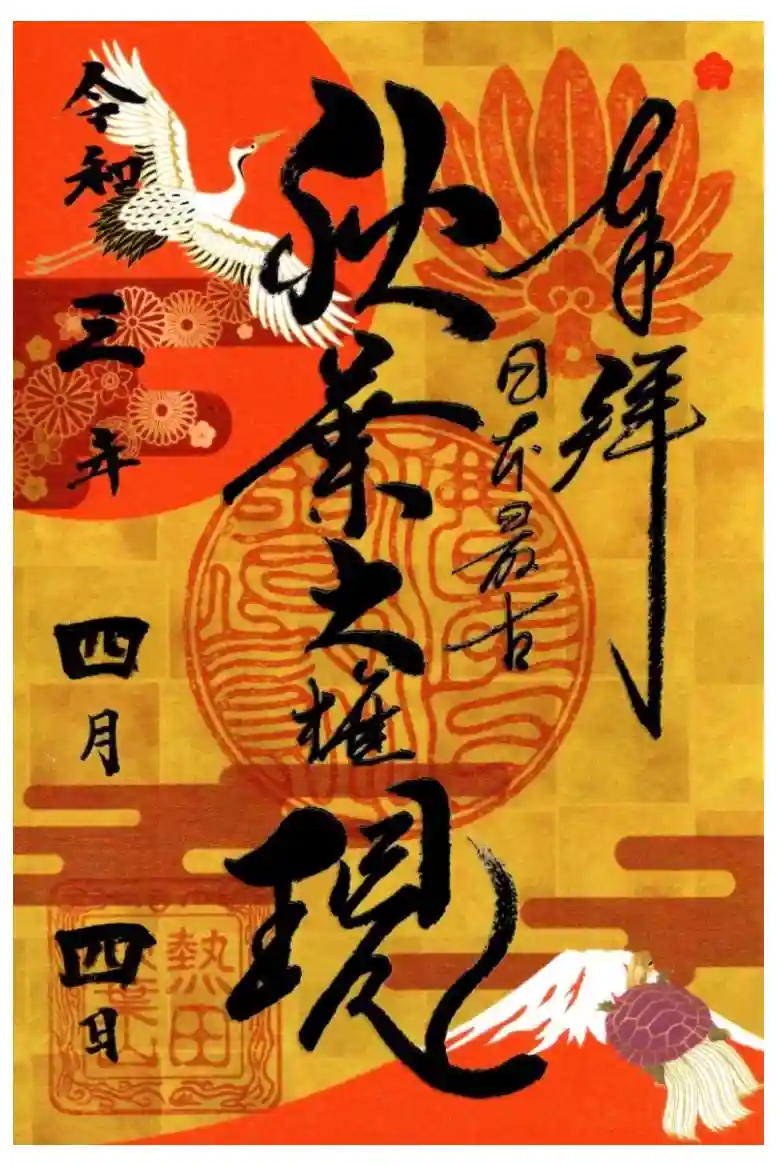 奉拝
日本最古
秋葉大権現
令和三年四月四日
熱田
秋葉山